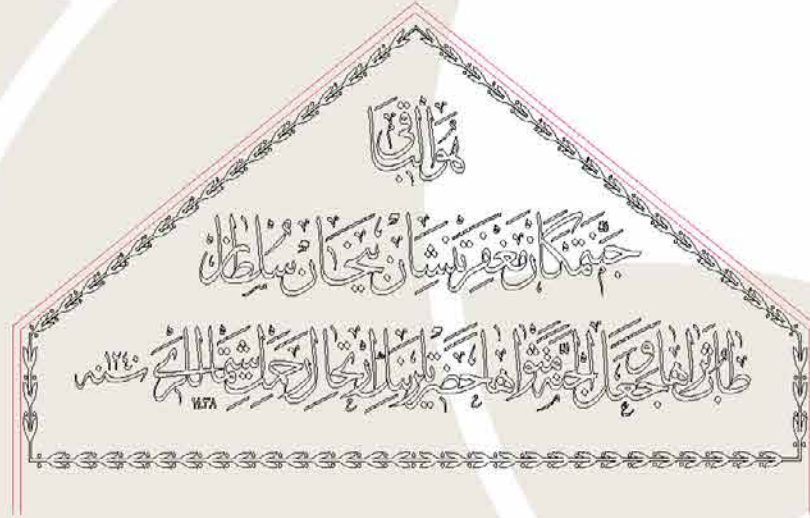 هو الباقي
جنتمكان مغفرتنشان بيخان سلطان
طاب ثراها وجعل الجنة مثواها حضرتلرينك ارتحال رحمت اشتماللري سنه ١٢٤٠
١٤٣٨